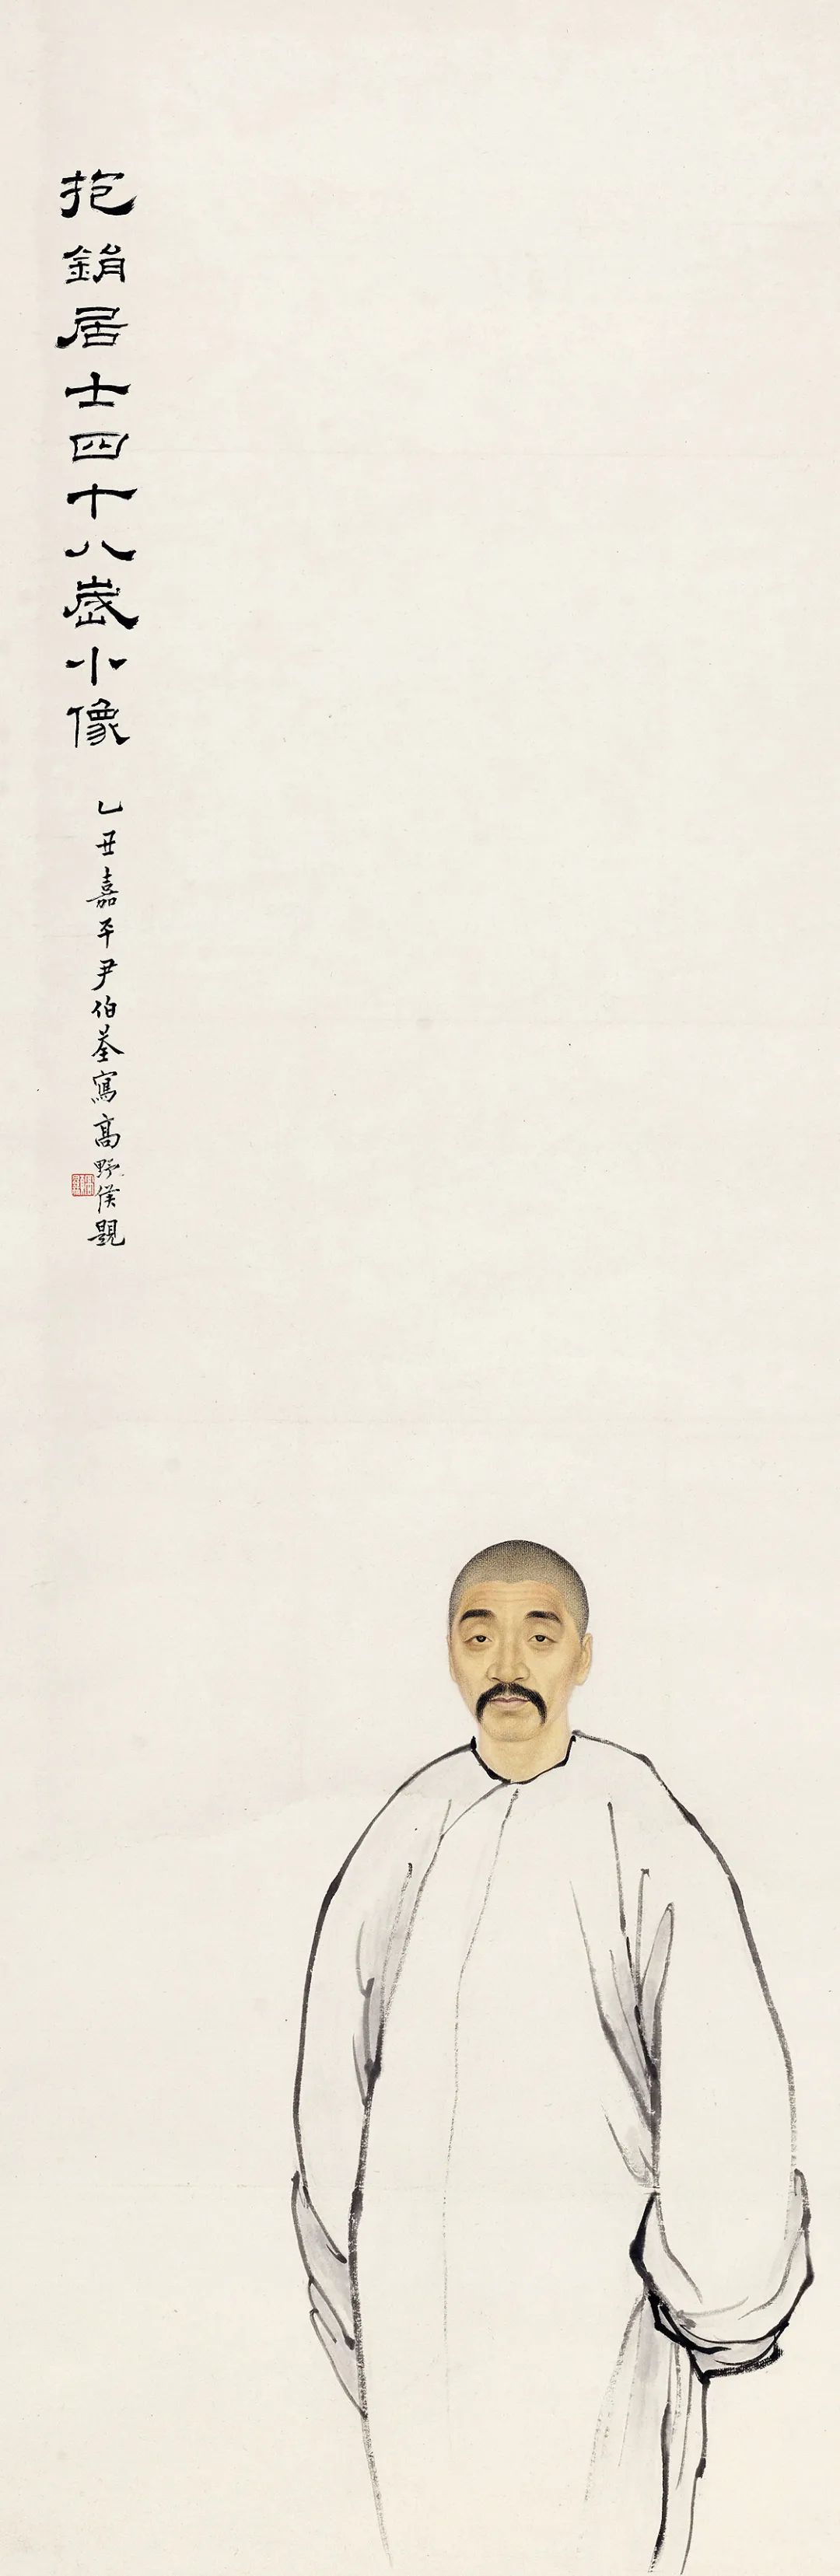 抱銷居士四十八歲小像
乙丑嘉平尹伯荃寫高野侯題